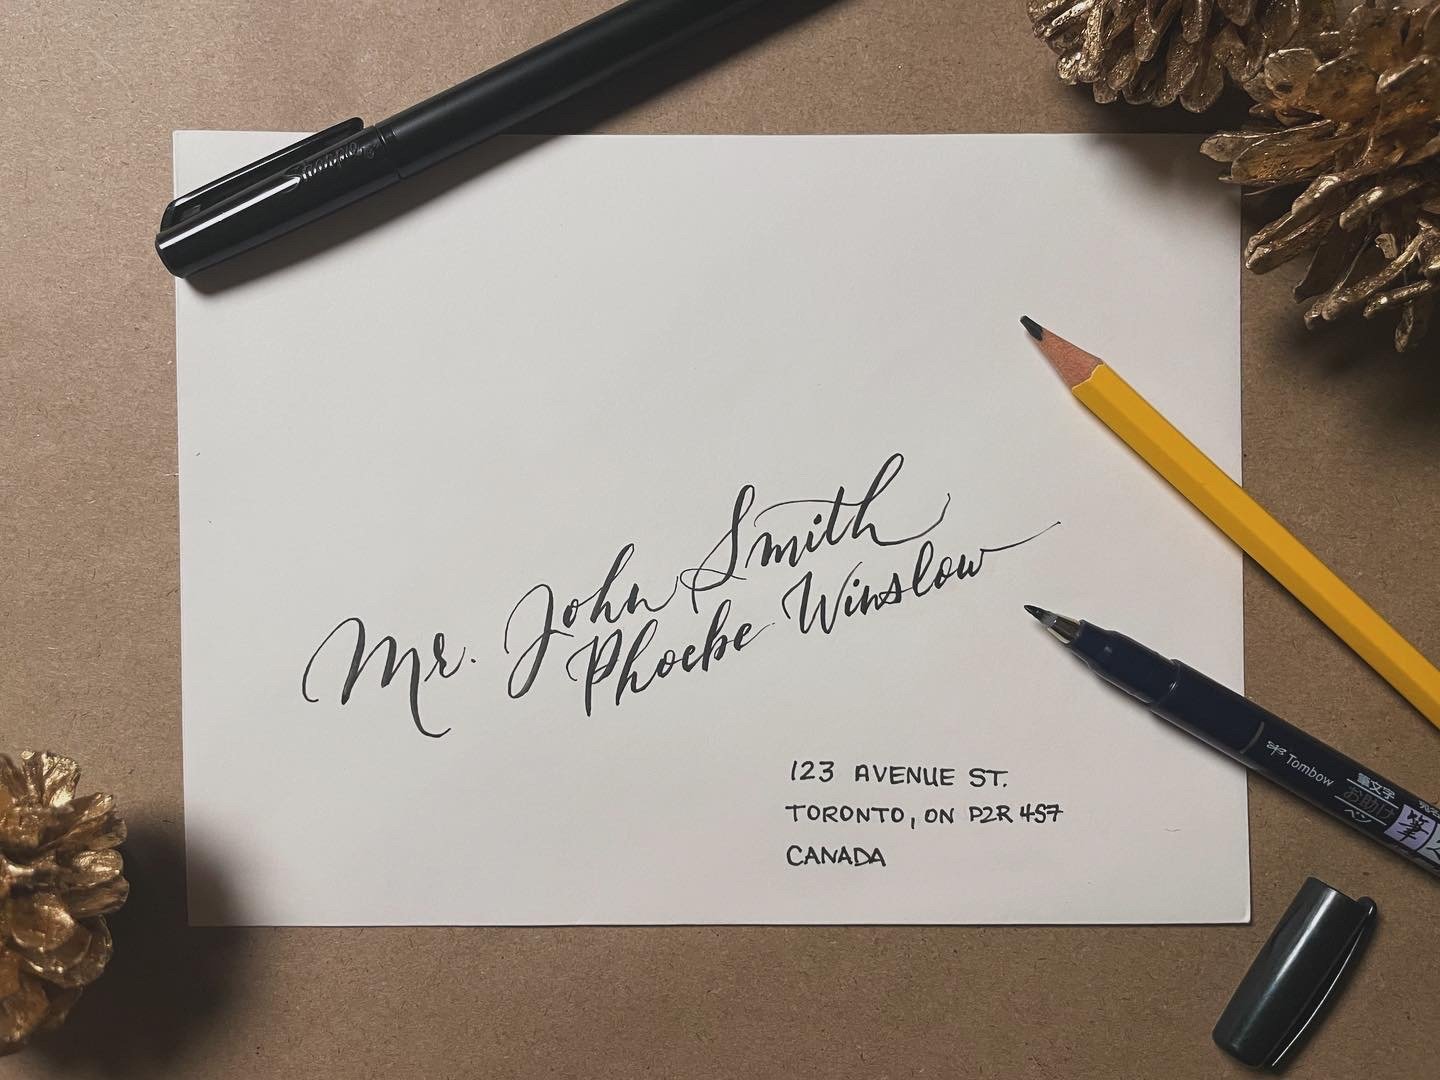 Mr. John Smith
Phoebe Winslow
123 AVENUE ST.
TORONTO, ON P2R 4S7
CANADA
Tombow
筆文字
お助け
ペン
筆